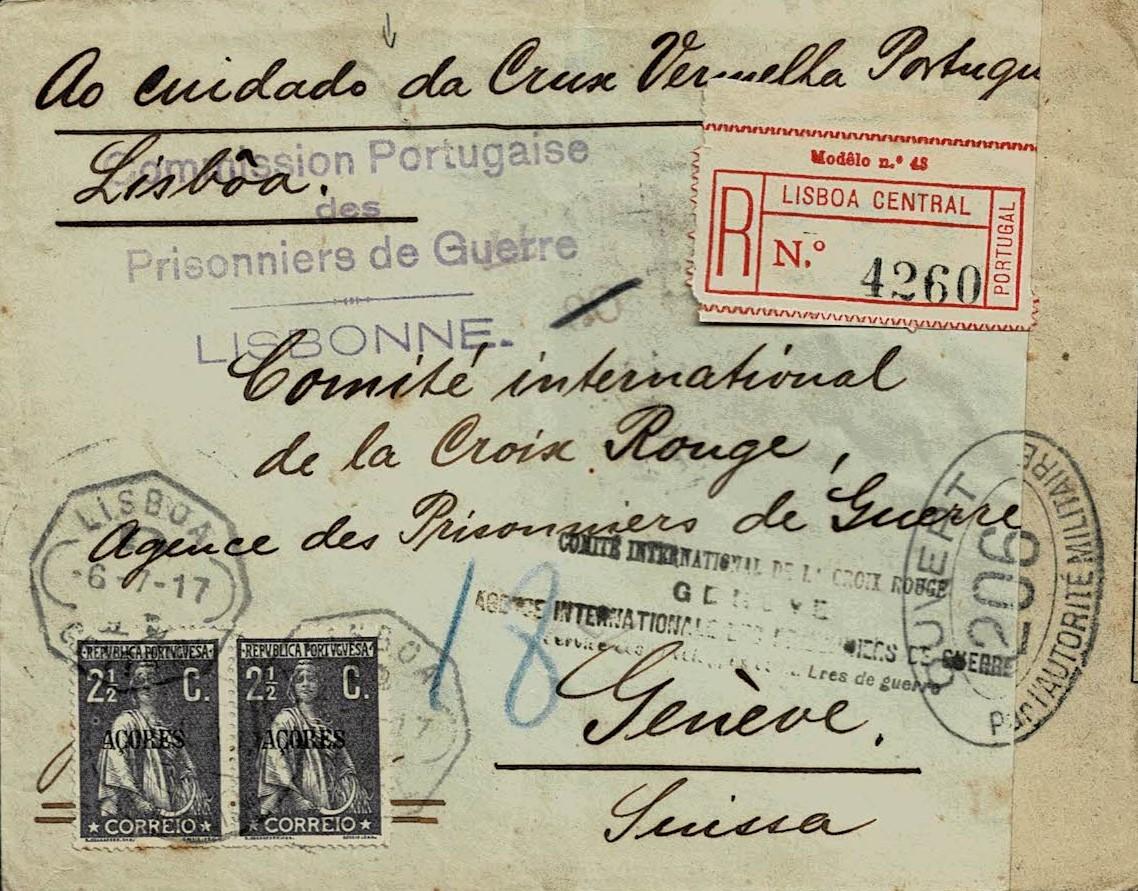 Ao cuidado da Crux Vermelha Portugu
Lisbôa.
Commission Portugaise
des
Prisonniers de Guerre
LISBONNE.
Modêlo n.º 48
R
LISBOA CENTRAL
N.º 4260
PORTUGAL
Comité international
de la Croix Rouge,
Agence des Prisonniers de Guerre
Genève.
Suissa
18
COMITÉ INTERNATIONAL DE LA CROIX ROUGE
GENÈVE
AGENCE INTERNATIONALE DES PRISONNIERS DE GUERRE
de guerre
OUVERT
206
PAR L'AUTORITÉ MILITAIRE
LISBOA
-6-7-17
LISBOA
17
REPVBLICA PORTVGVESA
2½ C.
AÇORES
CORREIO
REPVBLICA PORTVGVESA
2½ C.
AÇORES
CORREIO